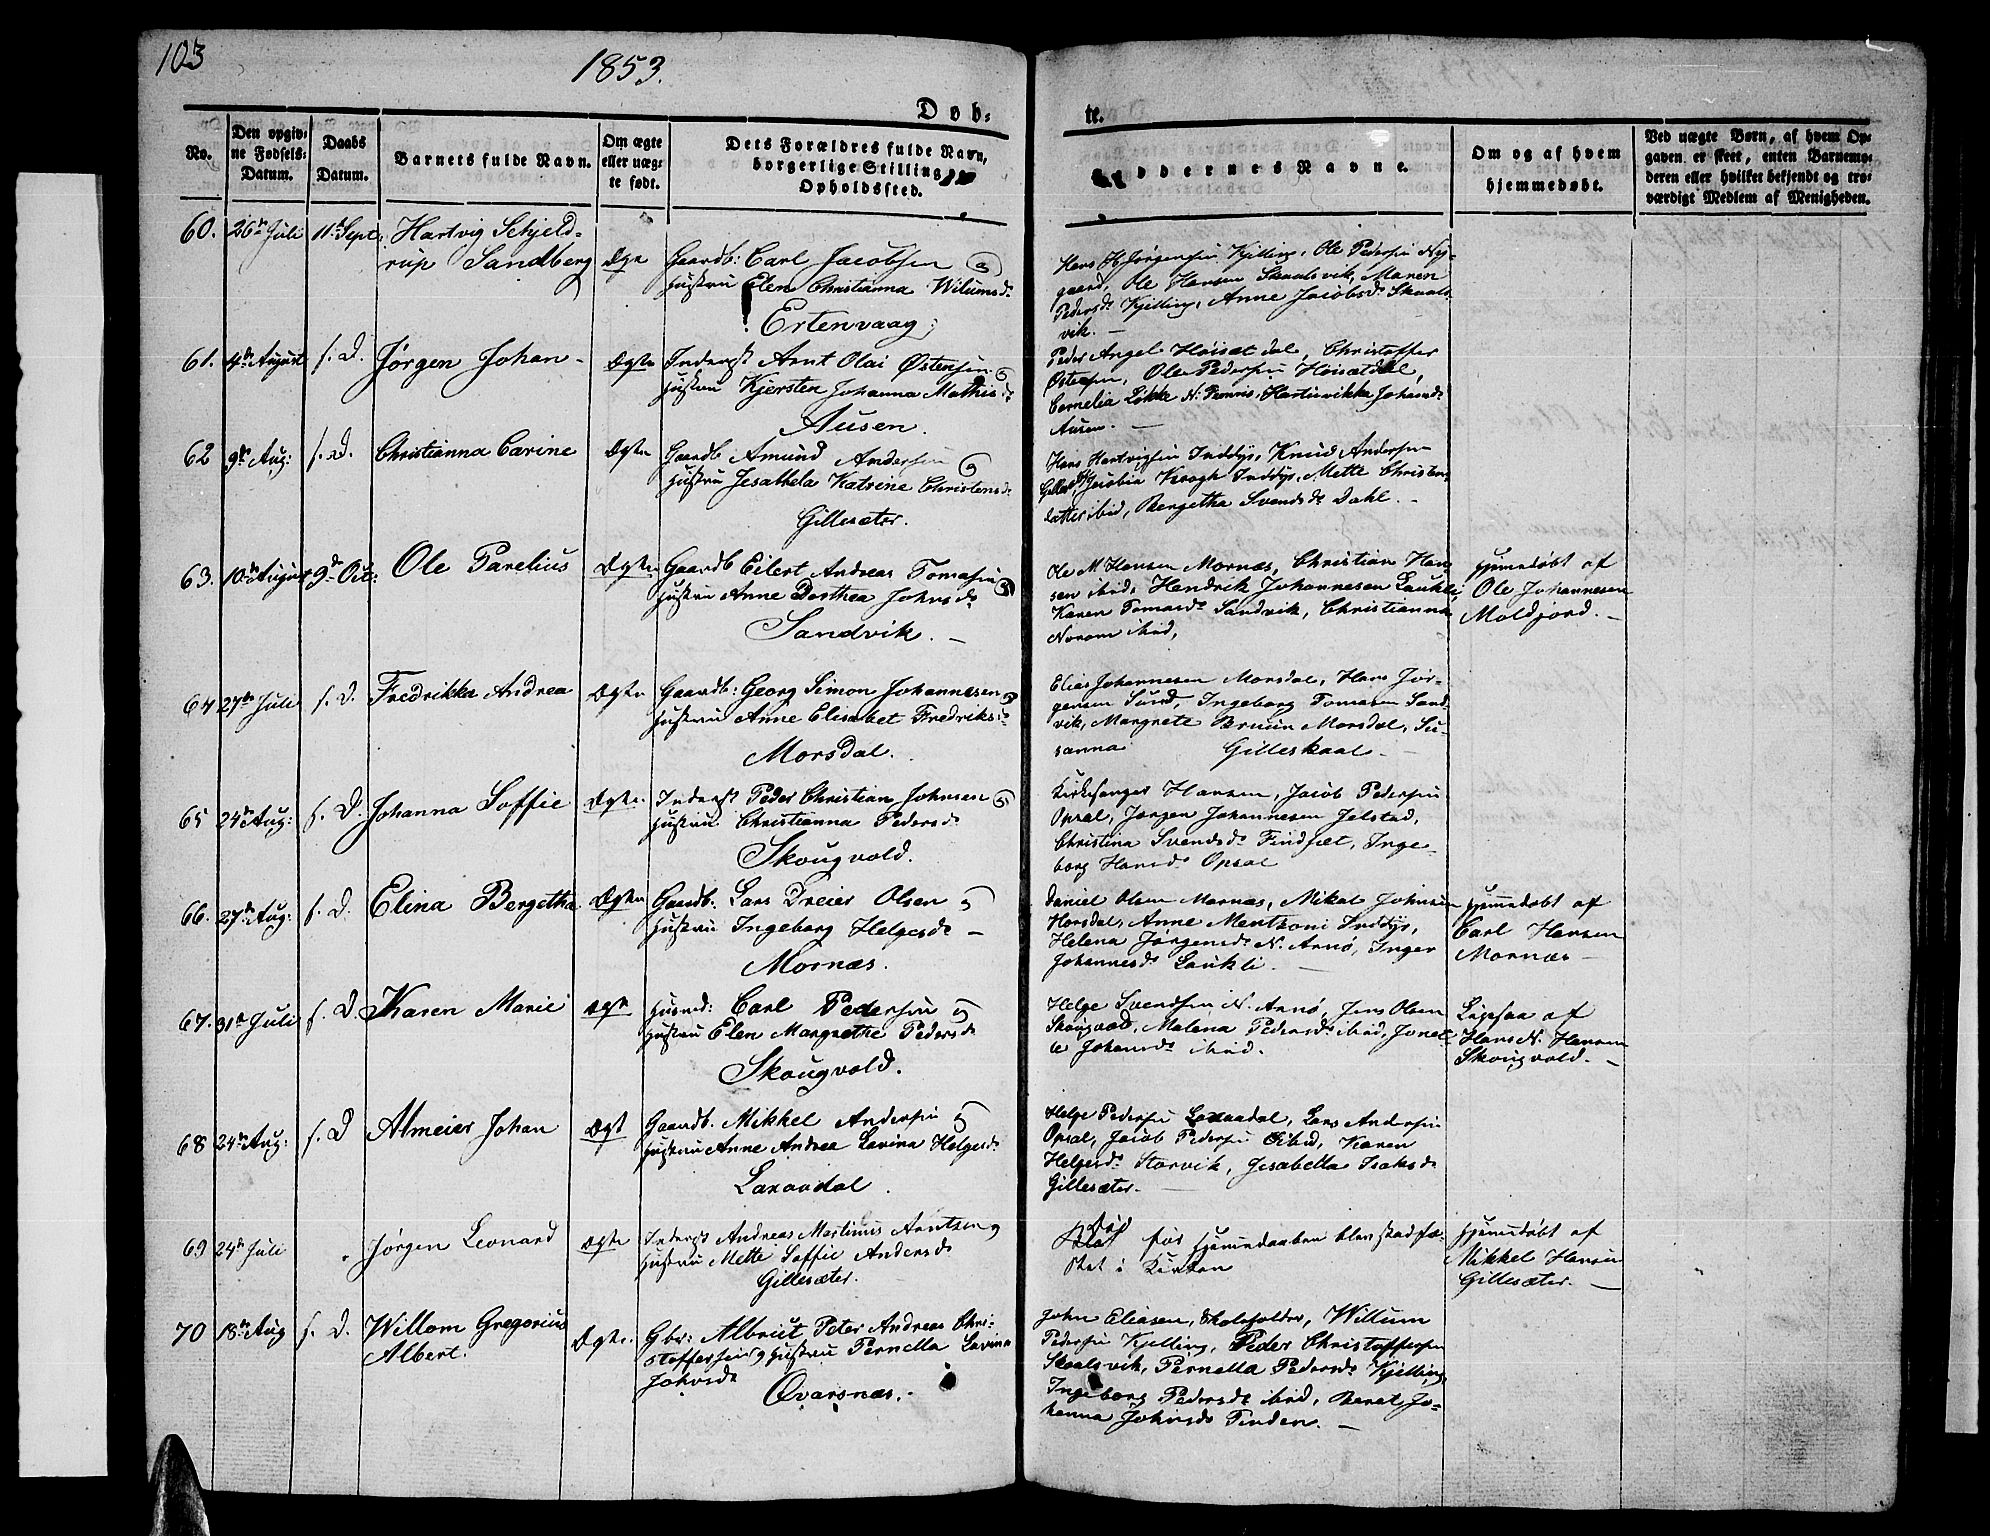 103
1853.
Døb-
te.
No.
Den opgiv-
ne Fødsels-
Datum.
Daabs
Datum.
Barnets fulde Navn.
Om ægte
eller uæg-
te født.
Dets Forældres fulde Navn,
borgerlige Stilling
Opholdssted.
Fadderes Navne.
Om og af hvem
hjemmedøbt.
Ved uægte Børn, af hvem Op-
gaven er skeet, enten Barnemo-
deren eller hvilket bekjendt og tro-
værdigt Medlem af Menigheden.
60. 26de Juli 11te Sept. Hartvig Schjeld-
rup Sandberg Ægte
Gaardb: Carl Jacobsen og
Hustru Elen Christianna Wilumsdr
Ertenvaag
Hans H Jørgensen Kjelling, Ole Pedersen Ny-
gaard, Ole Hansen Skaalsvik, Maren
Pedersdr Kjelling, Anne Jacobsdr Skaals-
vik. —
61. 4de August s. D. Jørgen Johan - Ægte
Inderst Arnt Olai Østensen og
Hustru Kjersten Johanna Mathisdr
Ausen.
Peder Angel Høisæt dal, Christoffer
Østensen, Ole Pedersen Høisætdal,
Cornelia Løkke N: Hartvikka Johansdr
Ausen. —
62 9de Aug: s. D. Christianna Carine Ægte
Gaardb Amund Andersen og
Hustru Jesabhela Katrine Christensdr
Gillesæter.
Hans Hartvigsen Inddyr, Knud Andersen
Jacobia Krogh Inddyr, Mette Christens
datter ibid, Bergetha Svendsdr Dahl. -
63. 10de August 9de Oct: Ole Parelius Ægte
Gaardb Eilert Andreas Tomasen og
Hustru Anne Dorthea Johnsdr
Sandvik. —
Ole M Hansen Mornæs, Christian Han-
sen ibid, Hendrik Johannesen Laukli,
Karen Tomasdr Sandvik, Christianna
Norom ibid,
Hjemedøbt af
Ole Johannesen
Moldjord. —
64 27de Juli s. D. Fredrikka Andrea Ægte
Gaardb: Georg Simon Johannesen og
Hustru Anne Elisabet Fredriksdr
Morsdal.
Elias Johannesen Morsdal, Hans Jør-
gensen Sund, Ingeborg Tomasen Sand-
vik, Margrete Bruun Morsdal, Su-
sanna Gilleskaal —
65 24de Aug: s. D. Johanna Soffie Ægte.
Inderst Peder Christian Johnsen og
Hustru Christianna Pedersdr
Skougvold.
Kirkesanger Hansen, Jacob Pedersen
Opsal, Jørgen Johannesen Jelstad,
Christina Svendsdr Findset, Inge-
borg Hansdr Opsal
66. 27de Aug: s. D. Elina Bergetha Ægte
Gaardb. Lars Dreier Olsen og
Hustru Ingeborg Helgesdr —
Mornæs.
Daniel Olsen Mornæs, Mikal Johnsen
Horsdal, Anne Mentzoni Inddyr,
Helena Jørgensdr N. Arnø, Inger
Johannesdr Laukli. —
Hjemedøbt af
Carl Hansen
Mornæs —
67. 31te Juli s. D Karen Marie Ægte
Husmd: Carl Pedersen og
Hustru Elen Margrethe Pedersdr
Skougvold.
Helge Svendsen N. Arnø, Jens Olsen
Skougvold, Malena Pedersdr ibid, Janet-
te Johansdr ibid.
Ligesaa af
Hans N. Hansen
Skougvold. —
68 24de Aug: s. D Almeier Johan Ægte
Gaardb. Mikkel Andersen og
Hustru Anne Andrea Lavina Helgesdr
Laxaadal.
Helge Pedersen Laxaadal, Lars Andersen
Opsal, Jacob Pedersen ibid, Karen
Helgesdr Storvik, Jesabella Isaksdr
Gillesæter. —
69 24de Juli Jørgen Leonard Ægte
Inderst Andreas Martinus Arntsen og
Hustru Mette Soffie Andersdr
Gillesæter.
Død før Hjemedaaben blev stadfæ-
stet i Kirken
Hjemedøbt af
Mikkel Hansen
Gillesæter. —
70 18de Aug s. D. Willom Gregorius
Albert. Ægte.
Gbr: Albrict Peter Andreas Chri-
stoffersen og Hustru Pernella Lavina
Johnsdr
Ovarsnæs. -
John Eliasen, Skoleholder, Willum
Pedersen Kjelling, Peder Christoffersen
Skaalsvik, Pernella Pedersdr Kjelling
Ingeborg Pedersdr ibid, Beret Jo-
hanna Johnsdr Finden. —